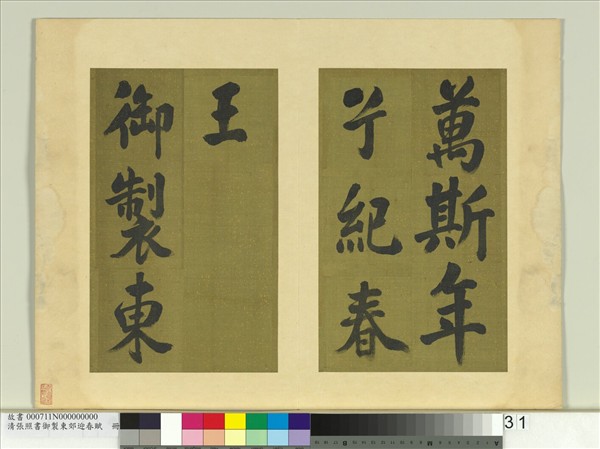 萬斯年
兮紀春
王
御製東
故書 000711N000000000
清張照書御製東郊迎春賦 冊
31